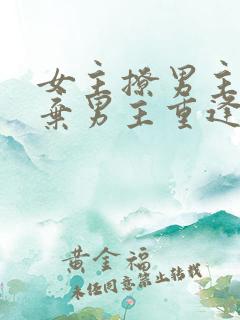 女主撩男主
弃男主重逢
黄金福
未经同意禁止转载